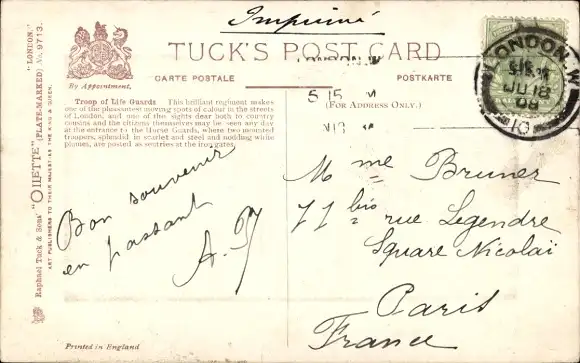 Imprimé
TUCK'S POST CARD
By Appointment.
CARTE POSTALE
POSTKARTE
(FOR ADDRESS ONLY.)
LONDON. W
5 15
LONDON. W
5.15 PM
JU 18
08
10
Troop of Life Guards This brilliant regiment makes
one of the pleasantest moving spots of colour in the streets
of London, and one of the sights dear both to country
cousins and the citizens themselves may be seen any day
at the entrance to the Horse Guards, where two mounted
troopers, splendid in scarlet and steel and nodding white
plumes, are posted as sentries at the iron gates.
Bon souvenir
en passant
Mme Bruner
77 bis rue Legendre
Square Nicolaï
Paris
France
Raphael Tuck & Sons' "OILETTE" [PLATE-MARKED] No. 9713. "LONDON."
ART PUBLISHERS TO THEIR MAJESTIES THE KING & QUEEN.
Printed in England